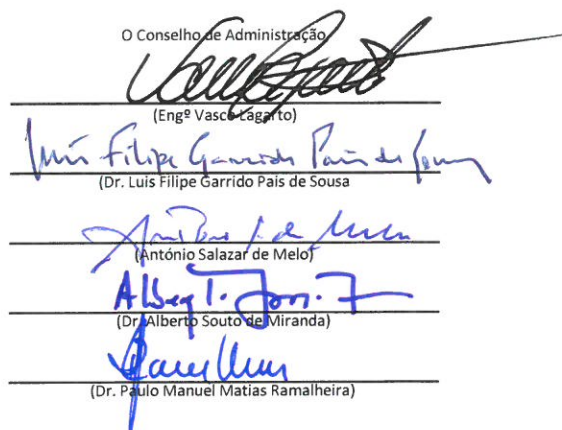 O Conselho de Administração
(Engº Vasco Lagarto)
Luís Filipe Garrido Pais de Sousa
(Dr. Luis Filipe Garrido Pais de Sousa
(António Salazar de Melo)
(Dr. Alberto Souto de Miranda)
(Dr. Paulo Manuel Matias Ramalheira)